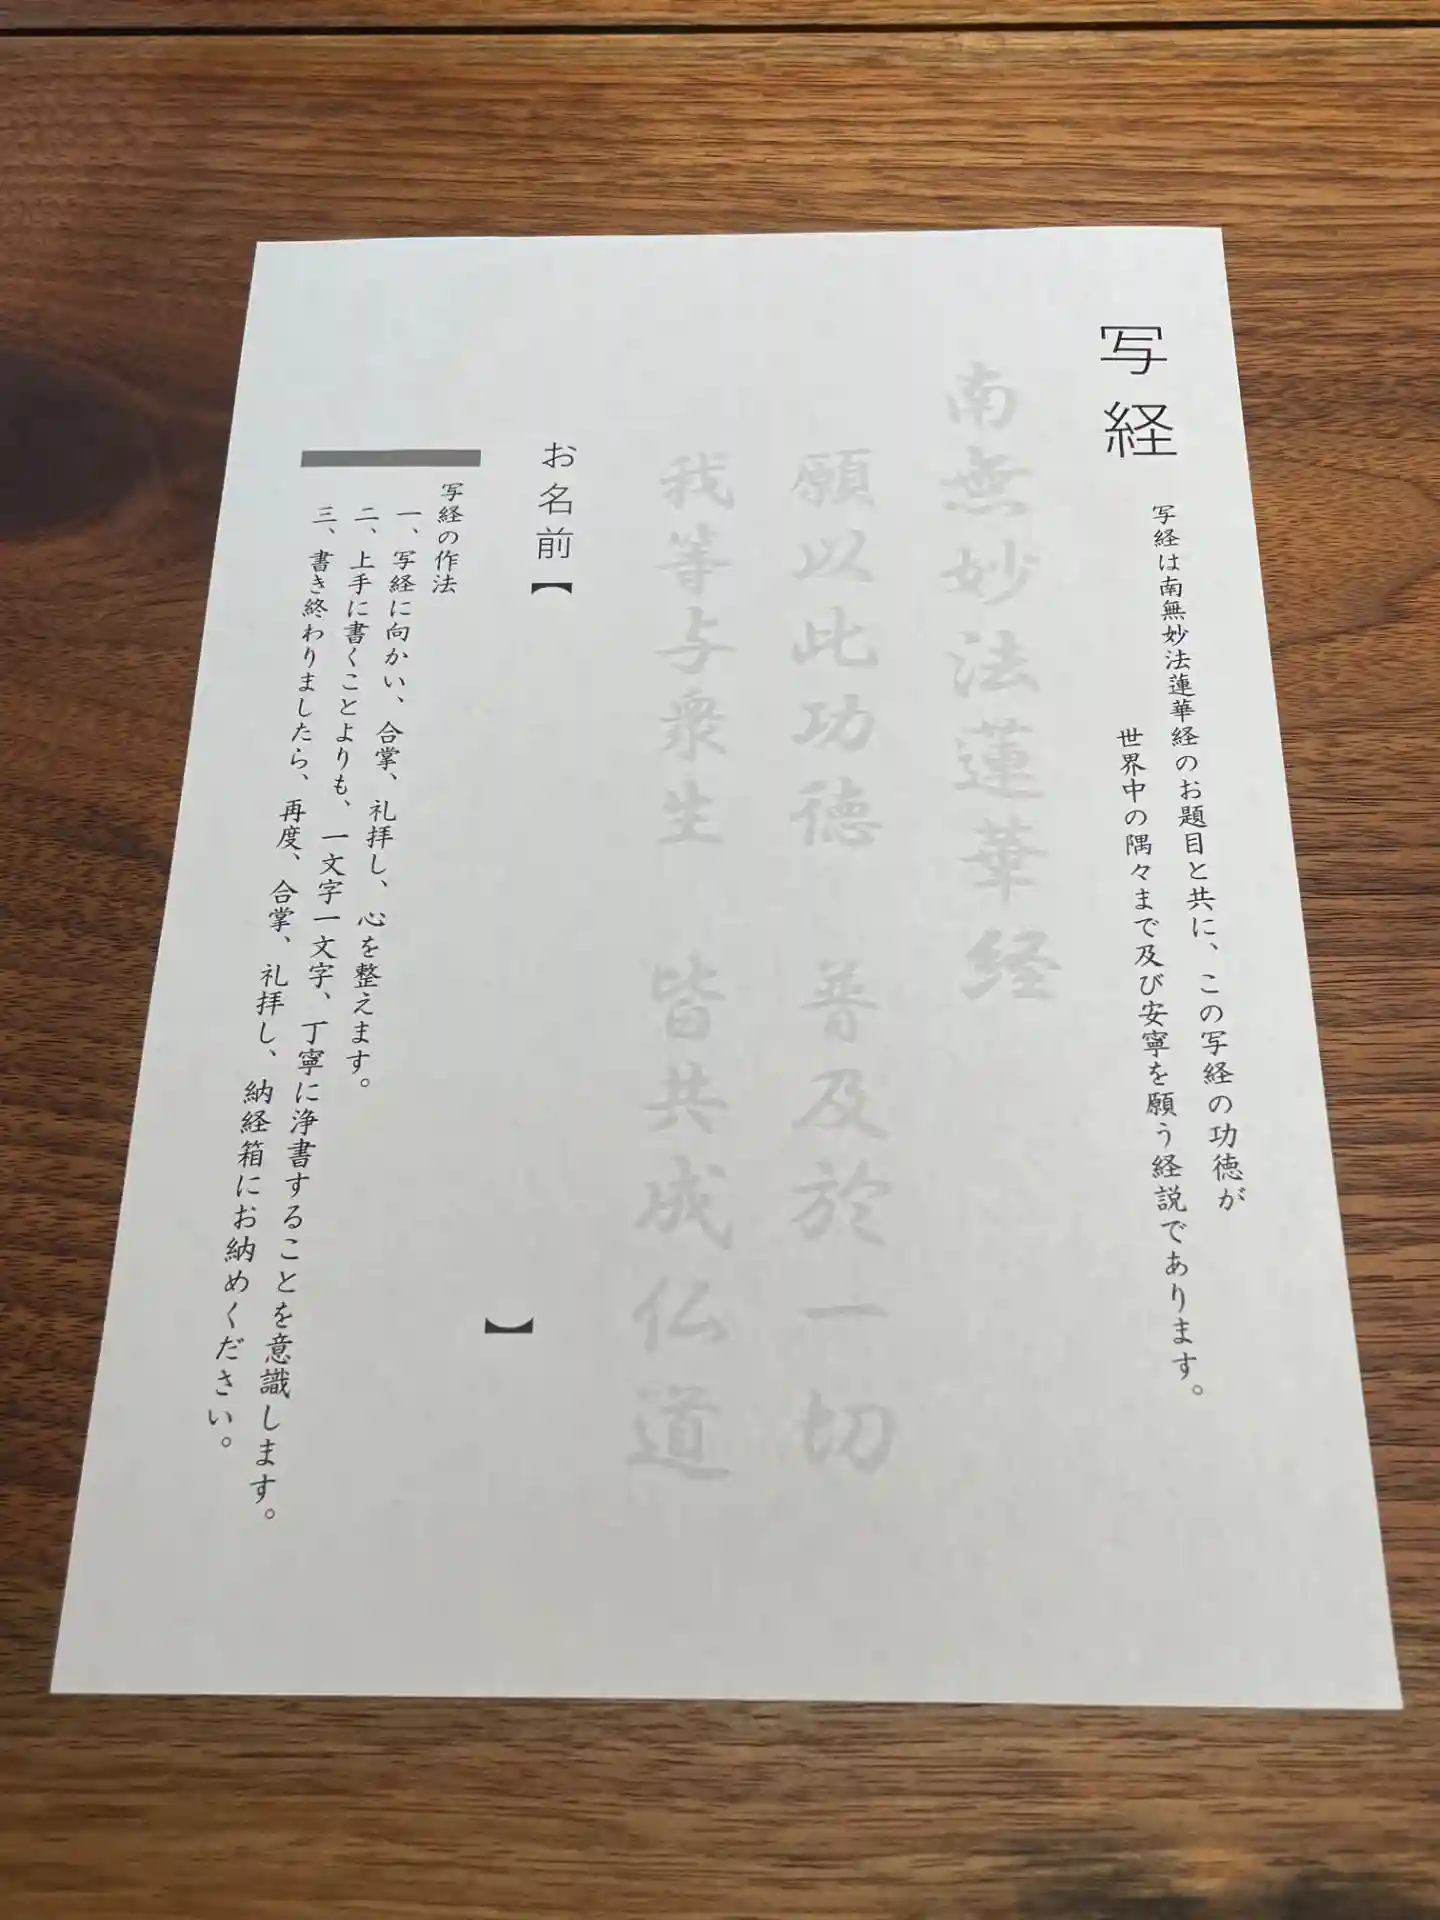 写経
写経は南無妙法蓮華経のお題目と共に、この写経の功徳が
世界中の隅々まで及び安寧を願う経説であります。
南無妙法蓮華経
願以此功徳 普及於一切
我等与衆生 皆共成仏道
お名前【 】
写経の作法
一、写経に向かい、合掌、礼拝し、心を整えます。
二、上手に書くことよりも、一文字一文字、丁寧に浄書することを意識します。
三、書き終わりましたら、再度、合掌、礼拝し、納経箱にお納めください。